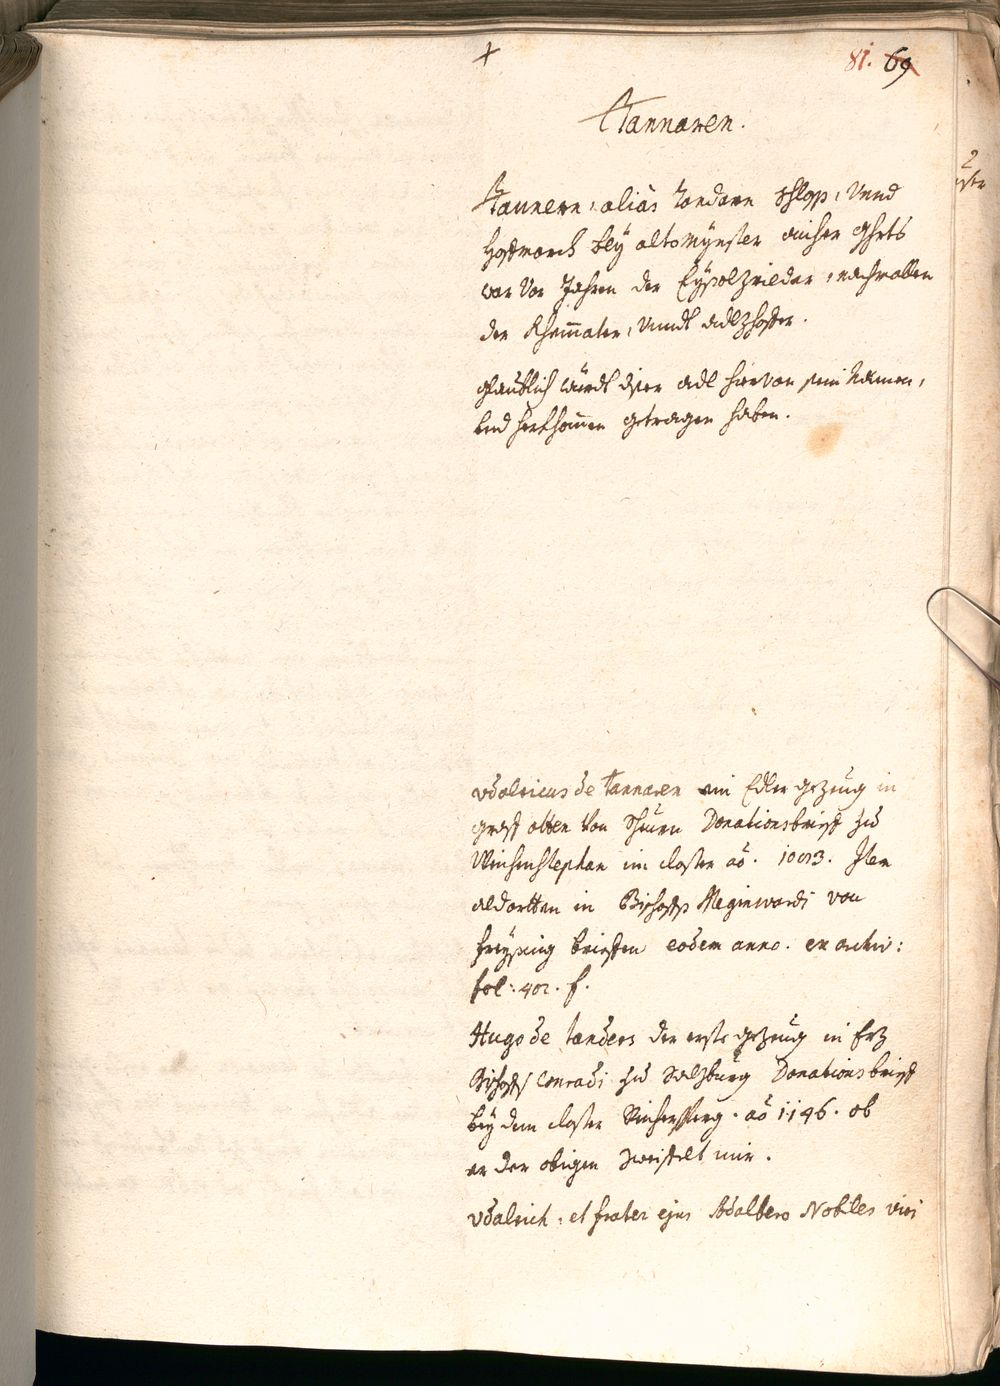 +
81. 69
Tannaren.
Tannern, alias Tondarn schloß, Vnnd
Hofmarch bey altoMünster aicher Ghrts
war Vor Jahren der Eysolzrieder, nachmallen
der Khemater, Vnndt adlzhofer.
glaublich würdt diser adl hiervon sein Namen,
vnd herkhomen getragen haben.
Vdalricus de Tannaren ein Edler gezeug in
graff otten von Schiern Donationsbrieff zu
Weichenstephan im closter ao. 1003. Item
aldortten in Bischoffs Meginwardi von
freysing brieffen eodem anno. ex archiv:
fol: 402. f.
Hugo de tanders der erste gezeug in Erz
Bischoffs Conradi zu Salzburg Donationsbrieff
bey dem closter Reichersperg. ao 1146. ob
er der obigen zweiffelt mir.
Vdalrich, et frater ejus Adalbero Nobiles viri